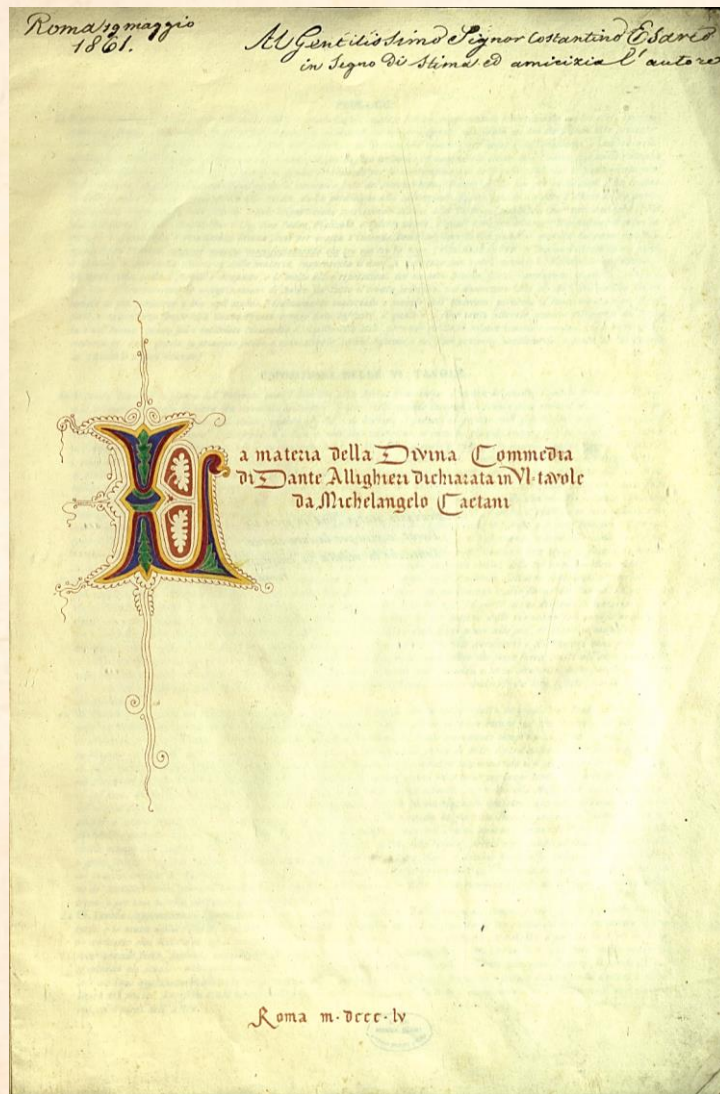 Roma 19 maggio
1861.
Al Gentilissimo Signor Costantino
in segno di stima ed amicizia l'autore
La materia della Divina Commedia
di Dante Allighieri dichiarata in VI· tavole
da Michelangelo Caetani
Roma m·dccc·lv